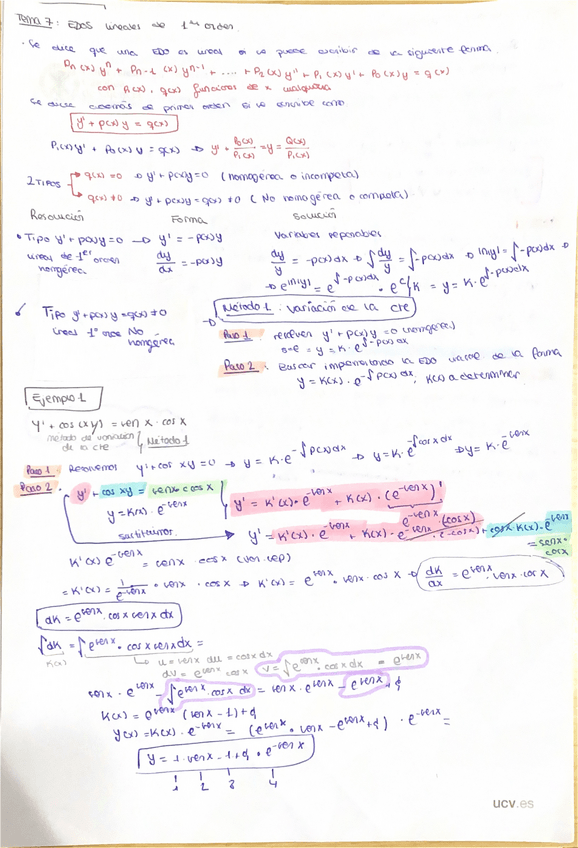 Tema 7: EDOS lineales de 1er orden.
· Se dice que una EDO es lineal si se puede escribir de la siguiente forma.
Pn(x) yⁿ + Pn-1 (x) yⁿ⁻¹ + .... + P2(x) y'' + P1(x) y' + P0(x) y = q(x)
con Pi(x), q(x) funciones de x cualquiera
Se dice además de primer orden si se escribe como
y' + p(x) y = q(x)
P1(x) y' + P0(x) y = q(x) ⇒ y' + P0(x)/P1(x) = y = Q(x)/P1(x)
2 TIPOS
q(x) = 0 ⇒ y' + p(x) y = 0 (homogénea o incompleta)
q(x) ≠ 0 ⇒ y' + p(x) y = q(x) ≠ 0 (No homogénea o completa)
Resolución Forma Solución
• Tipo y' + p(x) y = 0 → y' = -p(x) y Variables separables
lineal de 1er orden homogénea
dy/dx = -p(x) y
dy/y = -p(x) dx ⇒ ∫ dy/y = ∫ -p(x) dx ⇒ ln|y| = ∫ -p(x) dx ⇒
⇒ e^ln|y| = e^∫-p(x)dx · e^c/K = y = K · e^∫-p(x)dx
Tipo y' + p(x) y = q(x) ≠ 0
lineal 1er orden No homogénea
Método 1: variación de la cte
Paso 1: resolver y' + p(x) y = 0 (homogénea)
y = K · e^∫-p(x)dx
Paso 2: Buscar la EDO lineal de la forma
y = K(x) · e^-∫p(x)dx, K(x) a determinar
Ejemplo 1
y' + cos(x y) = sen x · cos x
método de variación de la cte Método 1
Paso 1: Resolvemos y' + cos x y = 0 ⇒ y = K · e^-∫p(x)dx ⇒ y = K · e^-∫cos x dx ⇒ y = K · e^-sen x
Paso 2:
y' + cos x y = sen x · cos x
y = K(x) · e^-sen x
y' = K'(x) · e^-sen x + K(x) · (e^-sen x)'
sustituimos
y' = K'(x) · e^-sen x + K(x) · e^-sen x · (-cos x) + cos x · K(x) · e^-sen x = sen x · cos x
K'(x) e^-sen x = sen x cos x (var. sep)
= K'(x) = 1/e^-sen x · sen x · cos x ⇒ K'(x) = e^sen x · sen x · cos x ⇒ dK/dx = e^sen x · sen x · cos x
dK = e^sen x · cos x sen x dx
∫ dK = ∫ e^sen x · cos x sen x dx =
K(x)
u = sen x du = cos x dx
dv = e^sen x cos x v = ∫ e^sen x · cos x dx = e^sen x
sen x · e^sen x - ∫ e^sen x · cos x dx = sen x · e^sen x - e^sen x + C
K(x) = e^sen x (sen x - 1) + C
y(x) = K(x) · e^-sen x = (e^sen x · sen x - e^sen x + C) · e^-sen x =
y = 1 · sen x - 1 + C · e^-sen x
1 2 3 4
ucv.es